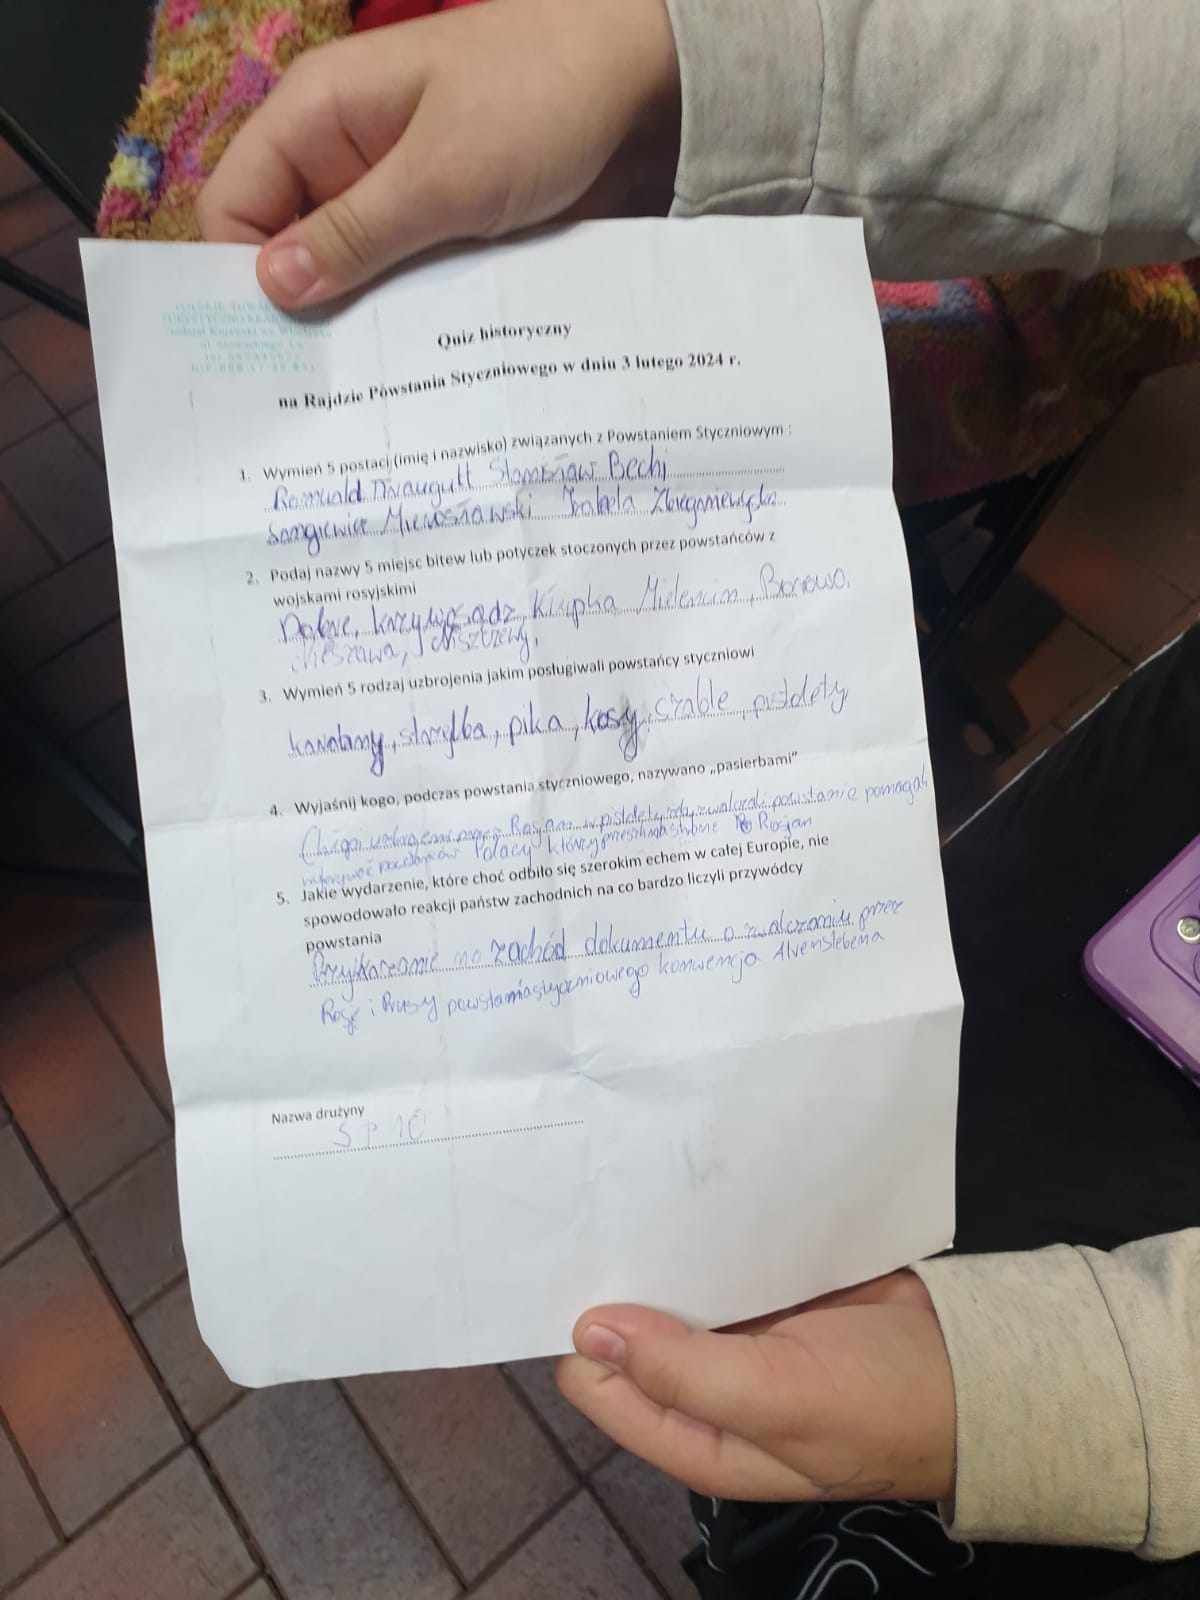 Quiz historyczny
na Rajdzie Powstania Styczniowego w dniu 3 lutego 2024 r.
1. Wymień 5 postaci (imię i nazwisko) związanych z Powstaniem Styczniowym :
Romuald Traugutt Stanisław Bechi
Langiewicz Mierosławski Izabela
2. Podaj nazwy 5 miejsc bitew lub potyczek stoczonych przez powstańców z
wojskami rosyjskimi
Dobre, Krzywosądz, Krupka Mielencin, Bonowo.
Nieszawa,
3. Wymień 5 rodzaj uzbrojenia jakim posługiwali powstańcy styczniowi
strzelba, pika, kosy, szable, pistolety
4. Wyjaśnij kogo, podczas powstania styczniowego, nazywano „pasierbami”
Chłopi uzbrojeni przez Rosjan w pistolety, powstanie pomagali
Polacy którzy na stronę Rosjan
5. Jakie wydarzenie, które choć odbiło się szerokim echem w całej Europie, nie
spowodowało reakcji państw zachodnich na co bardzo liczyli przywódcy
powstania
na zachód dokumentu o zwalczaniu przez
i Prusy konwencja Alvenslebena
Nazwa drużyny
SP 10